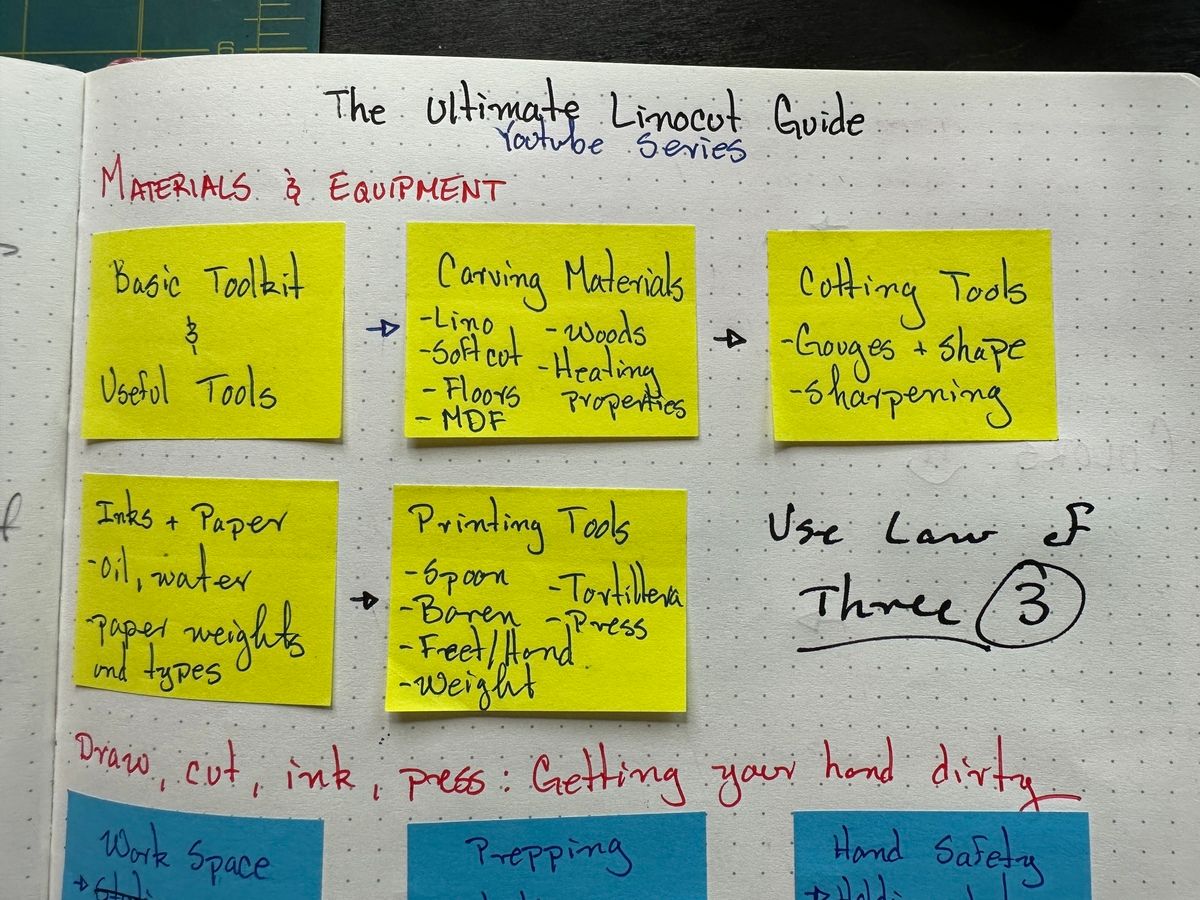 The Ultimate Linocut Guide
Youtube Series
MATERIALS & EQUIPMENT
Basic Toolkit
&
Useful Tools
Carving Materials
-Lino
-Softcut
-Floors
-MDF
-Woods
-Heating
properties
Cutting Tools
-Gouges + shape
-sharpening
Inks + Paper
-oil, water
-paper weights
and types
Printing Tools
-Spoon
-Baren
-Feet/Hand
-Weight
-Tortillera
-Press
Use Law of
Three 3
Draw, cut, ink, press: Getting your hand dirty
Work Space
Prepping
Hand Safety